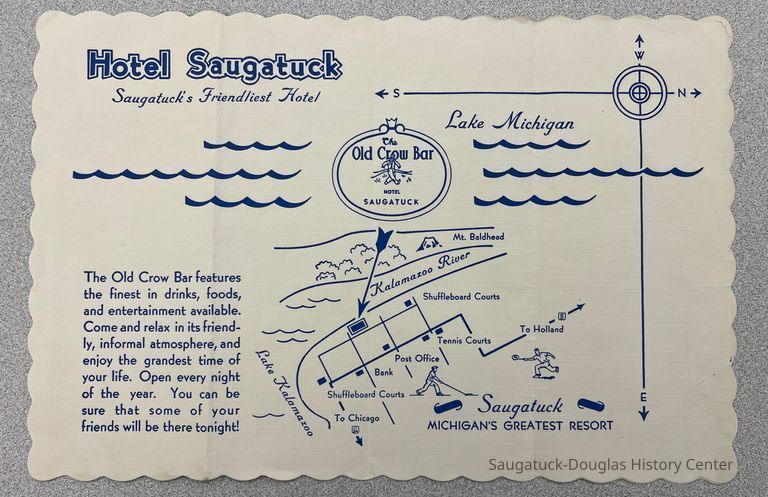 Hotel Saugatuck
Saugatuck's Friendliest Hotel
W
S
N
E
Lake Michigan
The
Old Crow Bar
HOTEL
SAUGATUCK
Mt. Baldhead
Kalamazoo River
The Old Crow Bar features
the finest in drinks, foods,
and entertainment available.
Come and relax in its friend-
ly, informal atmosphere, and
enjoy the grandest time of
your life. Open every night
of the year. You can be
sure that some of your
friends will be there tonight!
Shuffleboard Courts
To Holland
Tennis Courts
Post Office
Bank
Lake Kalamazoo
Shuffleboard Courts
To Chicago
Saugatuck
MICHIGAN'S GREATEST RESORT
Saugatuck-Douglas History Center